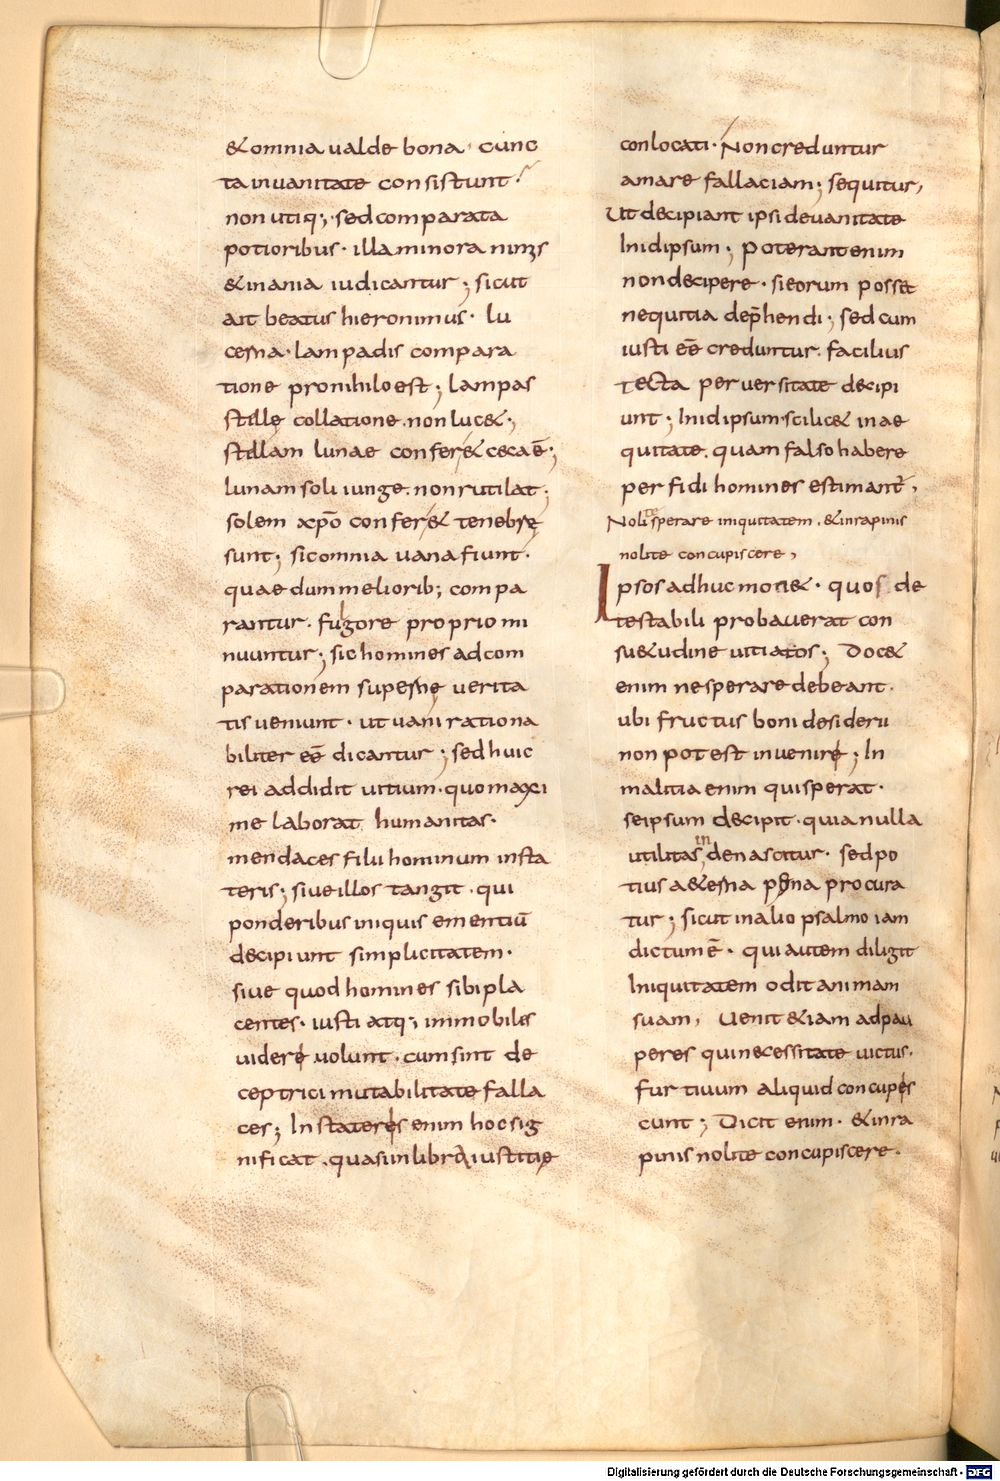 & omnia ualde bona · cunc
ta in uanitate consistunt ·
non utiq; · sed comparata
potioribus · illa minora
& inania iudicantur ; sicut
ait beatus hieronimus · lu
cerna · lampadis compara
tione pro nihilo est ; lampas
stellę collatione · non luc& ;
stellam lunae confer& ceca ē ;
lunam soli iunge · non rutilat ;
solem xp̄o confer& tenebrę
sunt ; sic omnia uana fiunt ·
quae dum meliorib; compa
rantur · fulgore proprio mi
nuuntur ; sic homines ad com
parationem supernę uerita
tis ueniunt · ut uani rationa
biliter eē dicantur ; sed huic
rei addidit uitium · quo maxi
me laborat humanitas ·
mendaces filii hominum in sta
teris ; siue illos tangit · qui
ponderibus iniquis ementiū
decipiunt simplicitatem ·
siue quod homines sibi pla
centes · iusti atq; immobiles
uidere uolunt · cum sint de
ceptrici mutabilitate falla
ces ; In stateris enim hoc sig
nificat · quasi in libra iustitię
conlocati · Non creduntur
amare fallaciam ; sequitur,
Ut decipiant ipsi de uanitate
In idipsum ; Poterant enim
non decipere · si eorum posset
nequitia dep̄hendi ; sed cum
iusti eē creduntur · facilius
tecta peruersitate decipi
unt ; In idipsum · scilic& in ae
quitate · quam falso habere
perfidi homines estimant̄ ,
Nolite sperare iniquitatem · & in rapinis
nolite concupiscere ,
Ipsos adhuc mon& · quos de
testabili probauerat con
su&udine uitiatos ; Doc&
enim ne sperare debeant ·
ubi fructus boni desiderii
non potest inuenire ; In
malitia enim qui sperat ·
seipsum decipit · quia nulla
utilitas inde nascitur · sed po
tius a&erna pęna procura
tur ; sicut in alio psalmo iam
dictum ē · qui autem diligit
Iniquitatem odit animam
suam , Uenit & iam ad pau
peres qui necessitate uictus ·
furtiuum aliquid concupis
cunt ; Dicit enim · & in ra
pinis nolite concupiscere ·
Digitalisierung gefördert durch die Deutsche Forschungsgemeinschaft - DFG